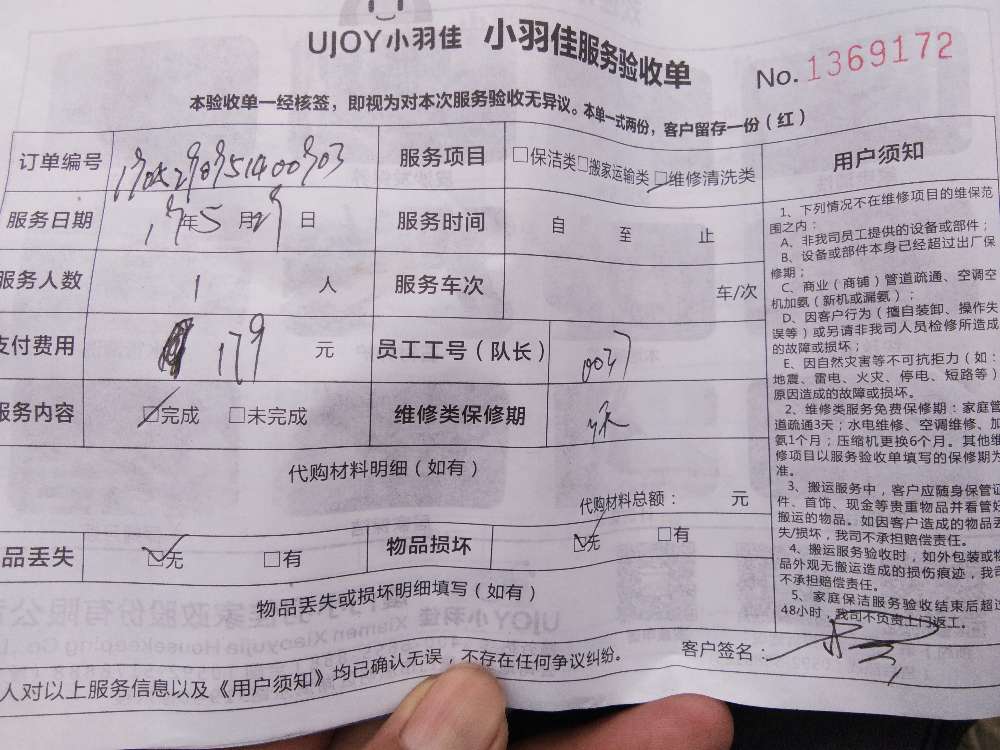 UJOY小羽佳 小羽佳服务验收单 No. 1369172
本验收单一经核签，即视为对本次服务验收无异议。本单一式两份，客户留存一份（红）
订单编号 服务项目 □保洁类□搬家运输类□维修清洗类
服务日期 17年5月29日 服务时间 自 至 止
服务人数 1 人 服务车次 车/次
支付费用 179 元 员工工号（队长） 0037
服务内容 □完成 □未完成 维修类保修期
代购材料明细（如有）
代购材料总额： 元
品丢失 □无 □有 物品损坏 □无 □有
物品丢失或损坏明细填写（如有）
人对以上服务信息以及《用户须知》均已确认无误，不存在任何争议纠纷。
客户签名：
用户须知
1、下列情况不在维修项目的维保范
围之内：
A、非我司员工提供的设备或部件；
B、设备或部件本身已经超过出厂保
修期；
C、商业（商铺）管道疏通、空调空
机加氨（新机或漏氨）；
D、因客户行为（擅自装卸、操作失
误等）或另请非我司人员检修所造成
的故障或损坏；
E、因自然灾害等不可抗拒力（如：
地震、雷电、火灾、停电、短路等）
原因造成的故障或损坏。
2、维修类服务免费保修期：家庭管
道疏通3天；水电维修、空调维修、加
氨1个月；压缩机更换6个月。其他维
修项目以服务验收单填写的保修期为
准。
3、搬运服务中，客户应随身保管证
件、首饰、现金等贵重物品并看管好
搬运的物品。如因客户造成的物品丢
失/损坏，我司不承担赔偿责任。
4、搬运服务验收时，如外包装或物
品外观无搬运造成的损伤痕迹，我司
不承担赔偿责任。
5、家庭保洁服务验收结束后超过
48小时，我司不负责上门返工。